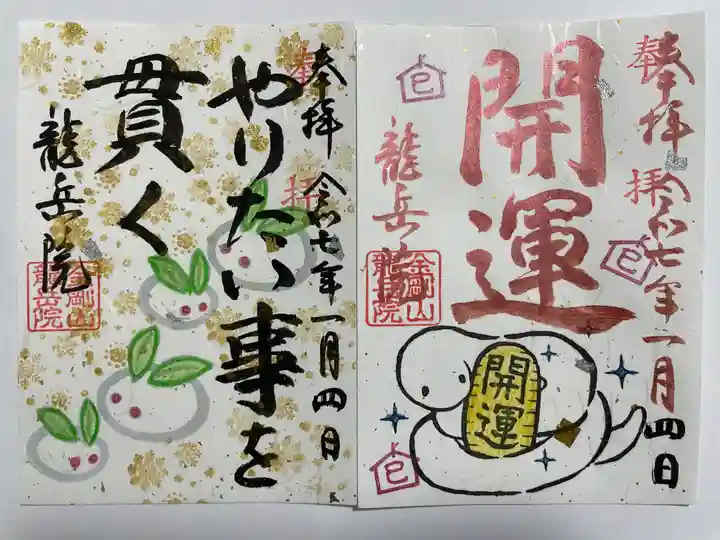 奉拝 令和七年一月四日
開運
龍岳院
金剛山
龍岳院
奉拝
開運
巳
巳
巳
奉拝 令和七年一月四日
やりたい事を
貫く
龍岳院
金剛山
龍岳院
奉拝